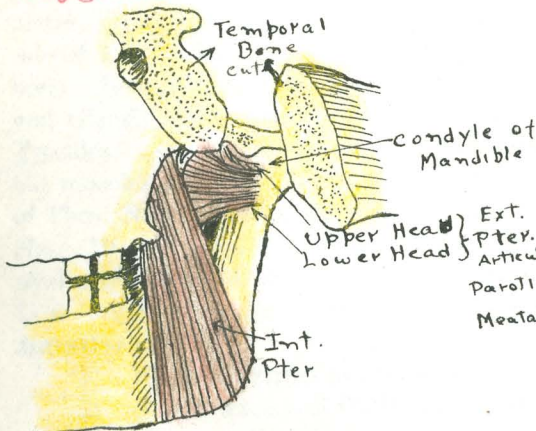 Temporal
Bone
cut
Condyle of
Mandible
Upper Head } Ext.
Lower Head } Pter.
Articu
Paroti
Meata
Int.
Pter